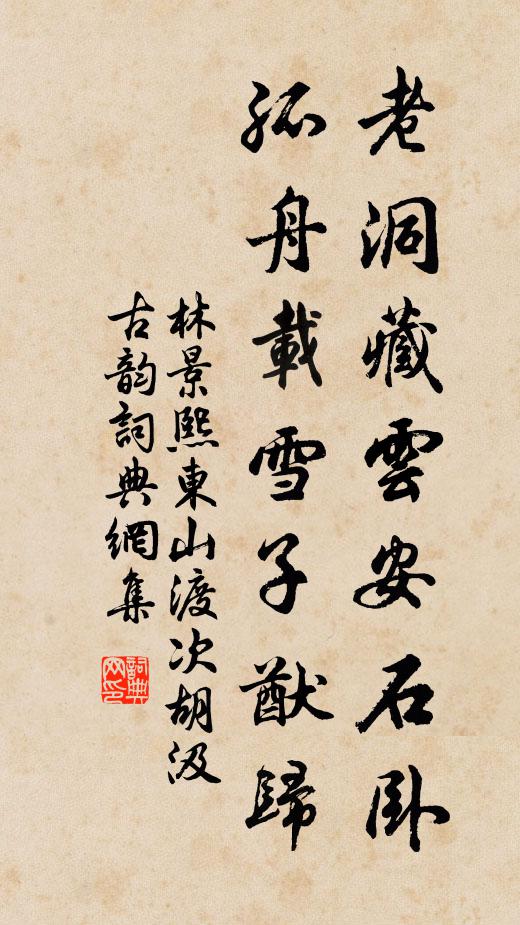 老洞藏雲安石臥
孤舟載雪子猷歸
林景熙東山渡次胡汲
古韵詞典網集
詞典網印